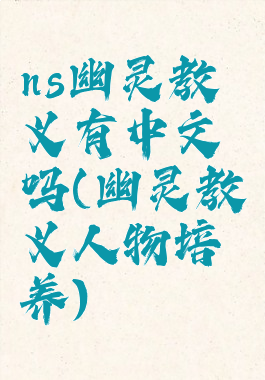 ns幽灵教
义有中文
吗(幽灵教
义人物培
养)